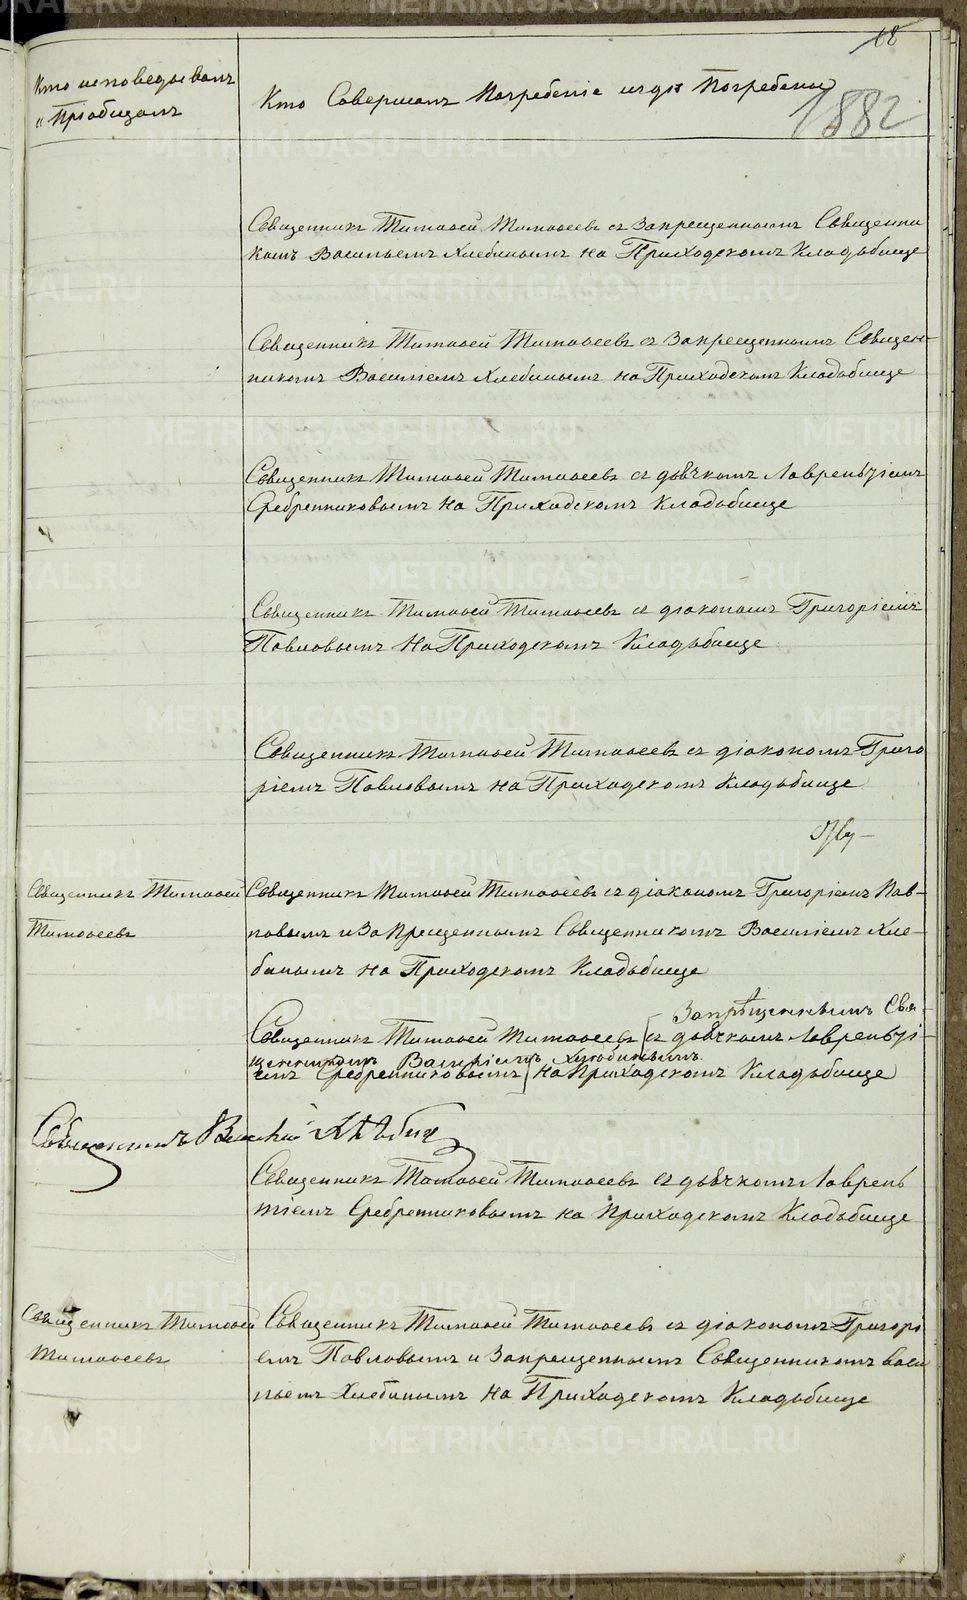 18
Кто исповедывалъ
и Пріобщалъ
Кто Совершалъ Погребеніе и где Погребены
1882
Священникъ Тимофей Тимофеевъ съ Запрещеннымъ Священни
комъ Васильемъ Хлебинымъ на Приходскомъ Кладьбище
Священникъ Тимофей Тимофеевъ съ Запрещеннымъ Священ-
никомъ Василіемъ Хлебинымъ на Приходскомъ Кладьбище
Священникъ Тимофей Тимофеевъ съ дьячкомъ Лаврентіемъ
Сребренниковымъ на Приходскомъ Кладьбище
Священникъ Тимофей Тимофеевъ съ діакономъ Григоріемъ
Павловымъ на Приходскомъ Кладьбище
Священникъ Тимофей Тимофеевъ съ діакономъ Григо
ріемъ Павловымъ на Приходскомъ Кладьбище
Священникъ Тимофей
Тимофеевъ
Священникъ Тимофей Тимофеевъ съ діакономъ Григоріемъ Пав-
ловымъ и Запрещеннымъ Священникомъ Василіемъ Хле-
бинымъ на Приходскомъ Кладьбище
Запрѣщеннымъ Свя-
Священникъ Тимофей Тимофеевъ съ дьячкомъ Лаврентьі-
щенникомъ Василіемъ Хлѣбинымъ
емъ Сребренниковымъ на Приходскомъ Кладьбище
Священникъ Василій Хлѣбин
Священникъ Тимофей Тимофеевъ съ дьячкомъ Лаврень
тіемъ Сребренниковымъ на Приходскомъ Кладьбище
Священникъ Тимофей
Тимофеевъ
Священникъ Тимофей Тимофеевъ съ діакономъ Григорі
емъ Павловымъ и Запрещеннымъ Священникомъ Васи
льемъ Хлебинымъ на Приходскомъ Кладьбище
METRIKI.GASO-URAL.RU